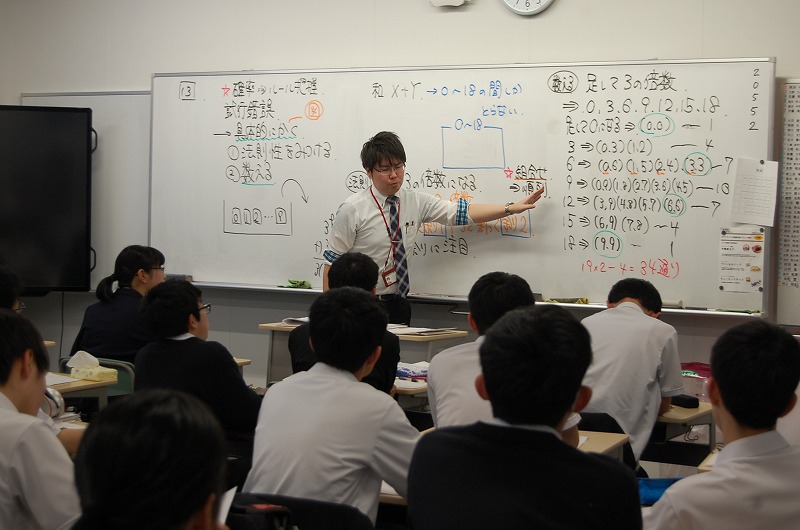 13
☆確率⇒ルール把握
試行錯誤
→具体的にかく
①法則性をみつける
②数える
0 1 2 … 9
和 X+Y → 0~18の間しか
とらない
0~18
の倍数になる
に注目
☆組合せ
数える 足して3の倍数
⇒ 0, 3, 6, 9, 12, 15, 18
足して0になる⇒(0,0) ー 1
3 ⇒ (0,3)(1,2) ー 4
6 ⇒ (0,6)(1,5)(2,4)(3,3) ー 7
9 ⇒ (0,9)(1,8)(2,7)(3,6)(4,5) ー 10
12 ⇒ (3,9)(4,8)(5,7)(6,6) ー 7
15 ⇒ (6,9)(7,8) ー 4
18 ⇒ (9,9) ー 1
19×2-4=34通り
2
0
5
5
2